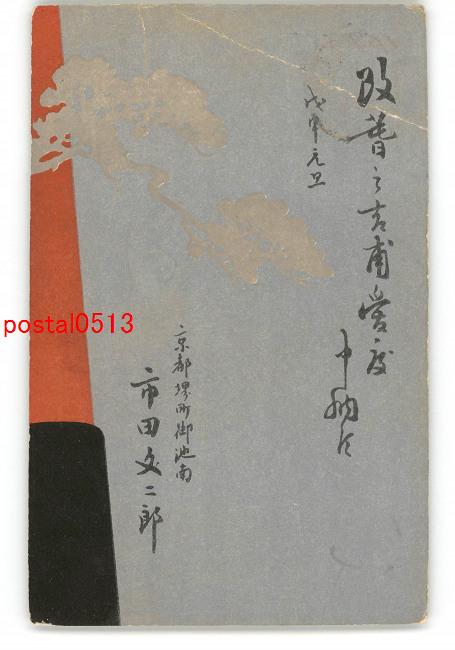 改暦之吉甫愛度
申納候
戊申元旦
京都堺町御池南
市田文二郎
postal0513